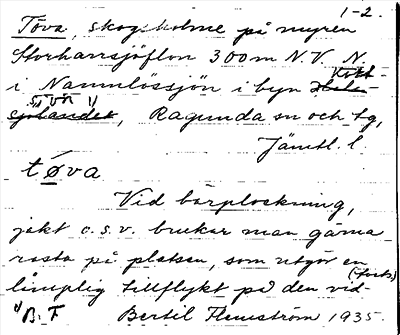 1-2.
Töva, skogsholme på myren
Storharrsjöflon 300 m N.V. N.
i Navnlössjön i byn Kött-
sjön, Ragunda sn och tg,
Jämtl. l.
tøva
Vid bärplockning,
jakt o.s.v. brukar man gärna
rasta på platsen, som utgör en
(forts)
lämplig tillflykt på den vid-
B. F Bertil Flemström 1935.